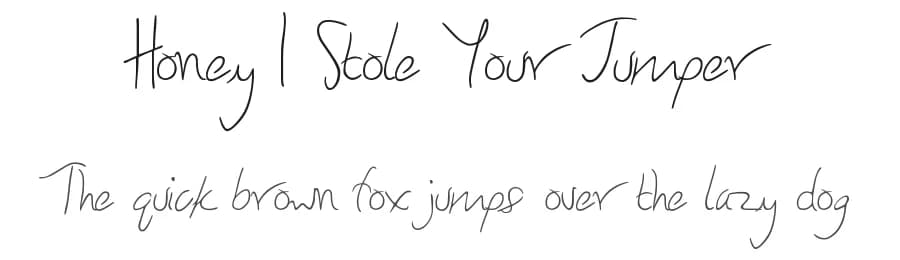 Honey I Stole Your Jumper
The quick brown fox jumps over the lazy dog